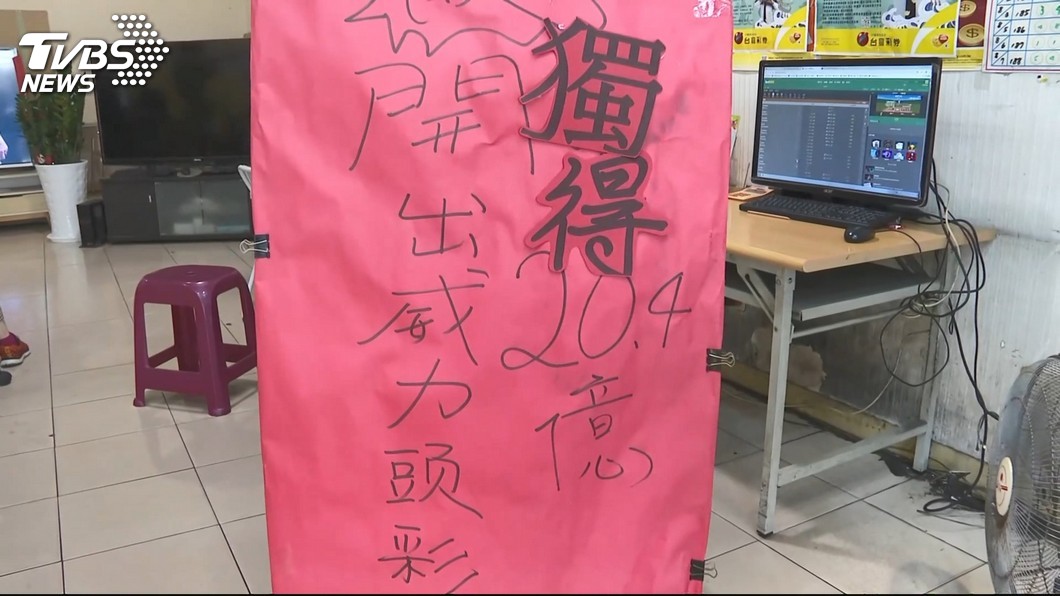 TVBS
NEWS
獨得
20.4
億
開出威力頭彩
台灣彩券
台灣彩券